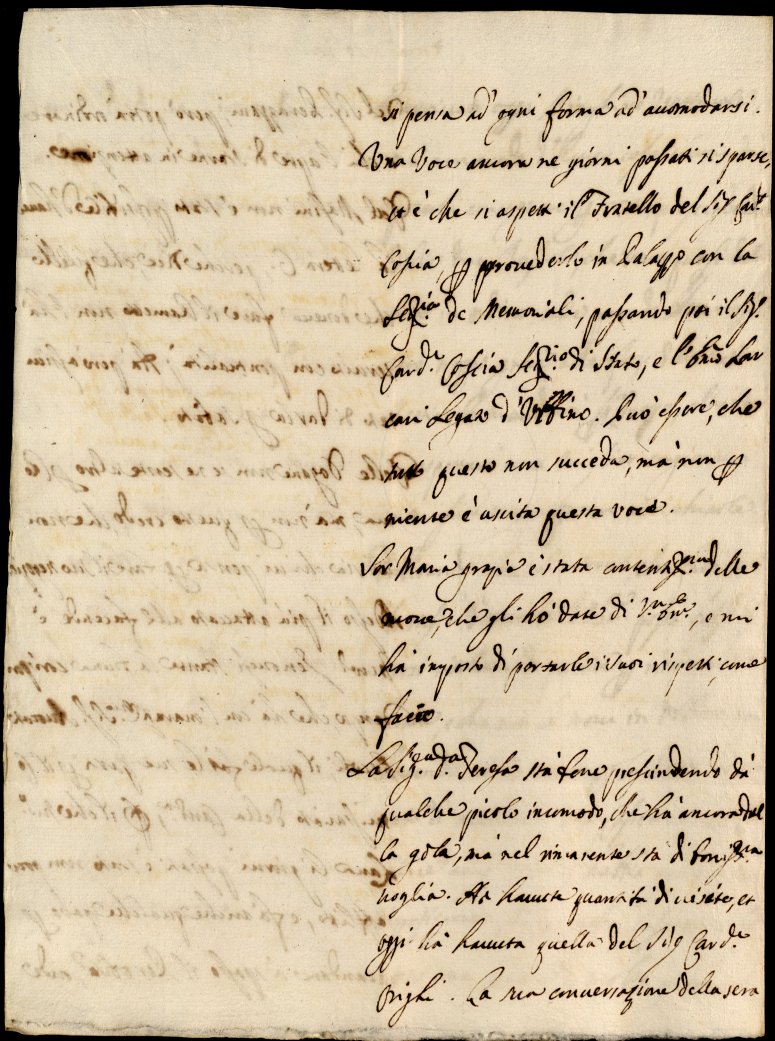 si pensa ad' ogni forma ad' accomodarsi.
Una Voce ancora ne giorni passati si sparse,
et è che si aspetti il Fratello del Sig.r Card.e
Coscia, per provederlo in Palazzo con la
Seg.ria de Memoriali, passando poi il Sig.r
Card.e Coscia Seg.rio di Stato, e l' Em.o Lar
cari Legato d' Urbino. Può essere, che
tutto questo non succeda, mà non per
niente è uscita questa voce.
Sor Maria grazia è stata contentis.ma delle
nuove, che gli hò date di V. Em.a, e mi
hà imposto di portarle i suoi rispetti, come
faccio.
La Sig.ra D.a Teresa stà bene prescindendo dà
qualche picolo incomodo, che hà ancora del
la gola, mà nel rimanente stà di bonis.ma
voglia. Hà havute quantità di visite, et
oggi hà havuta quella del Sig.r Card.e
Orighi. La sua conversazione della sera